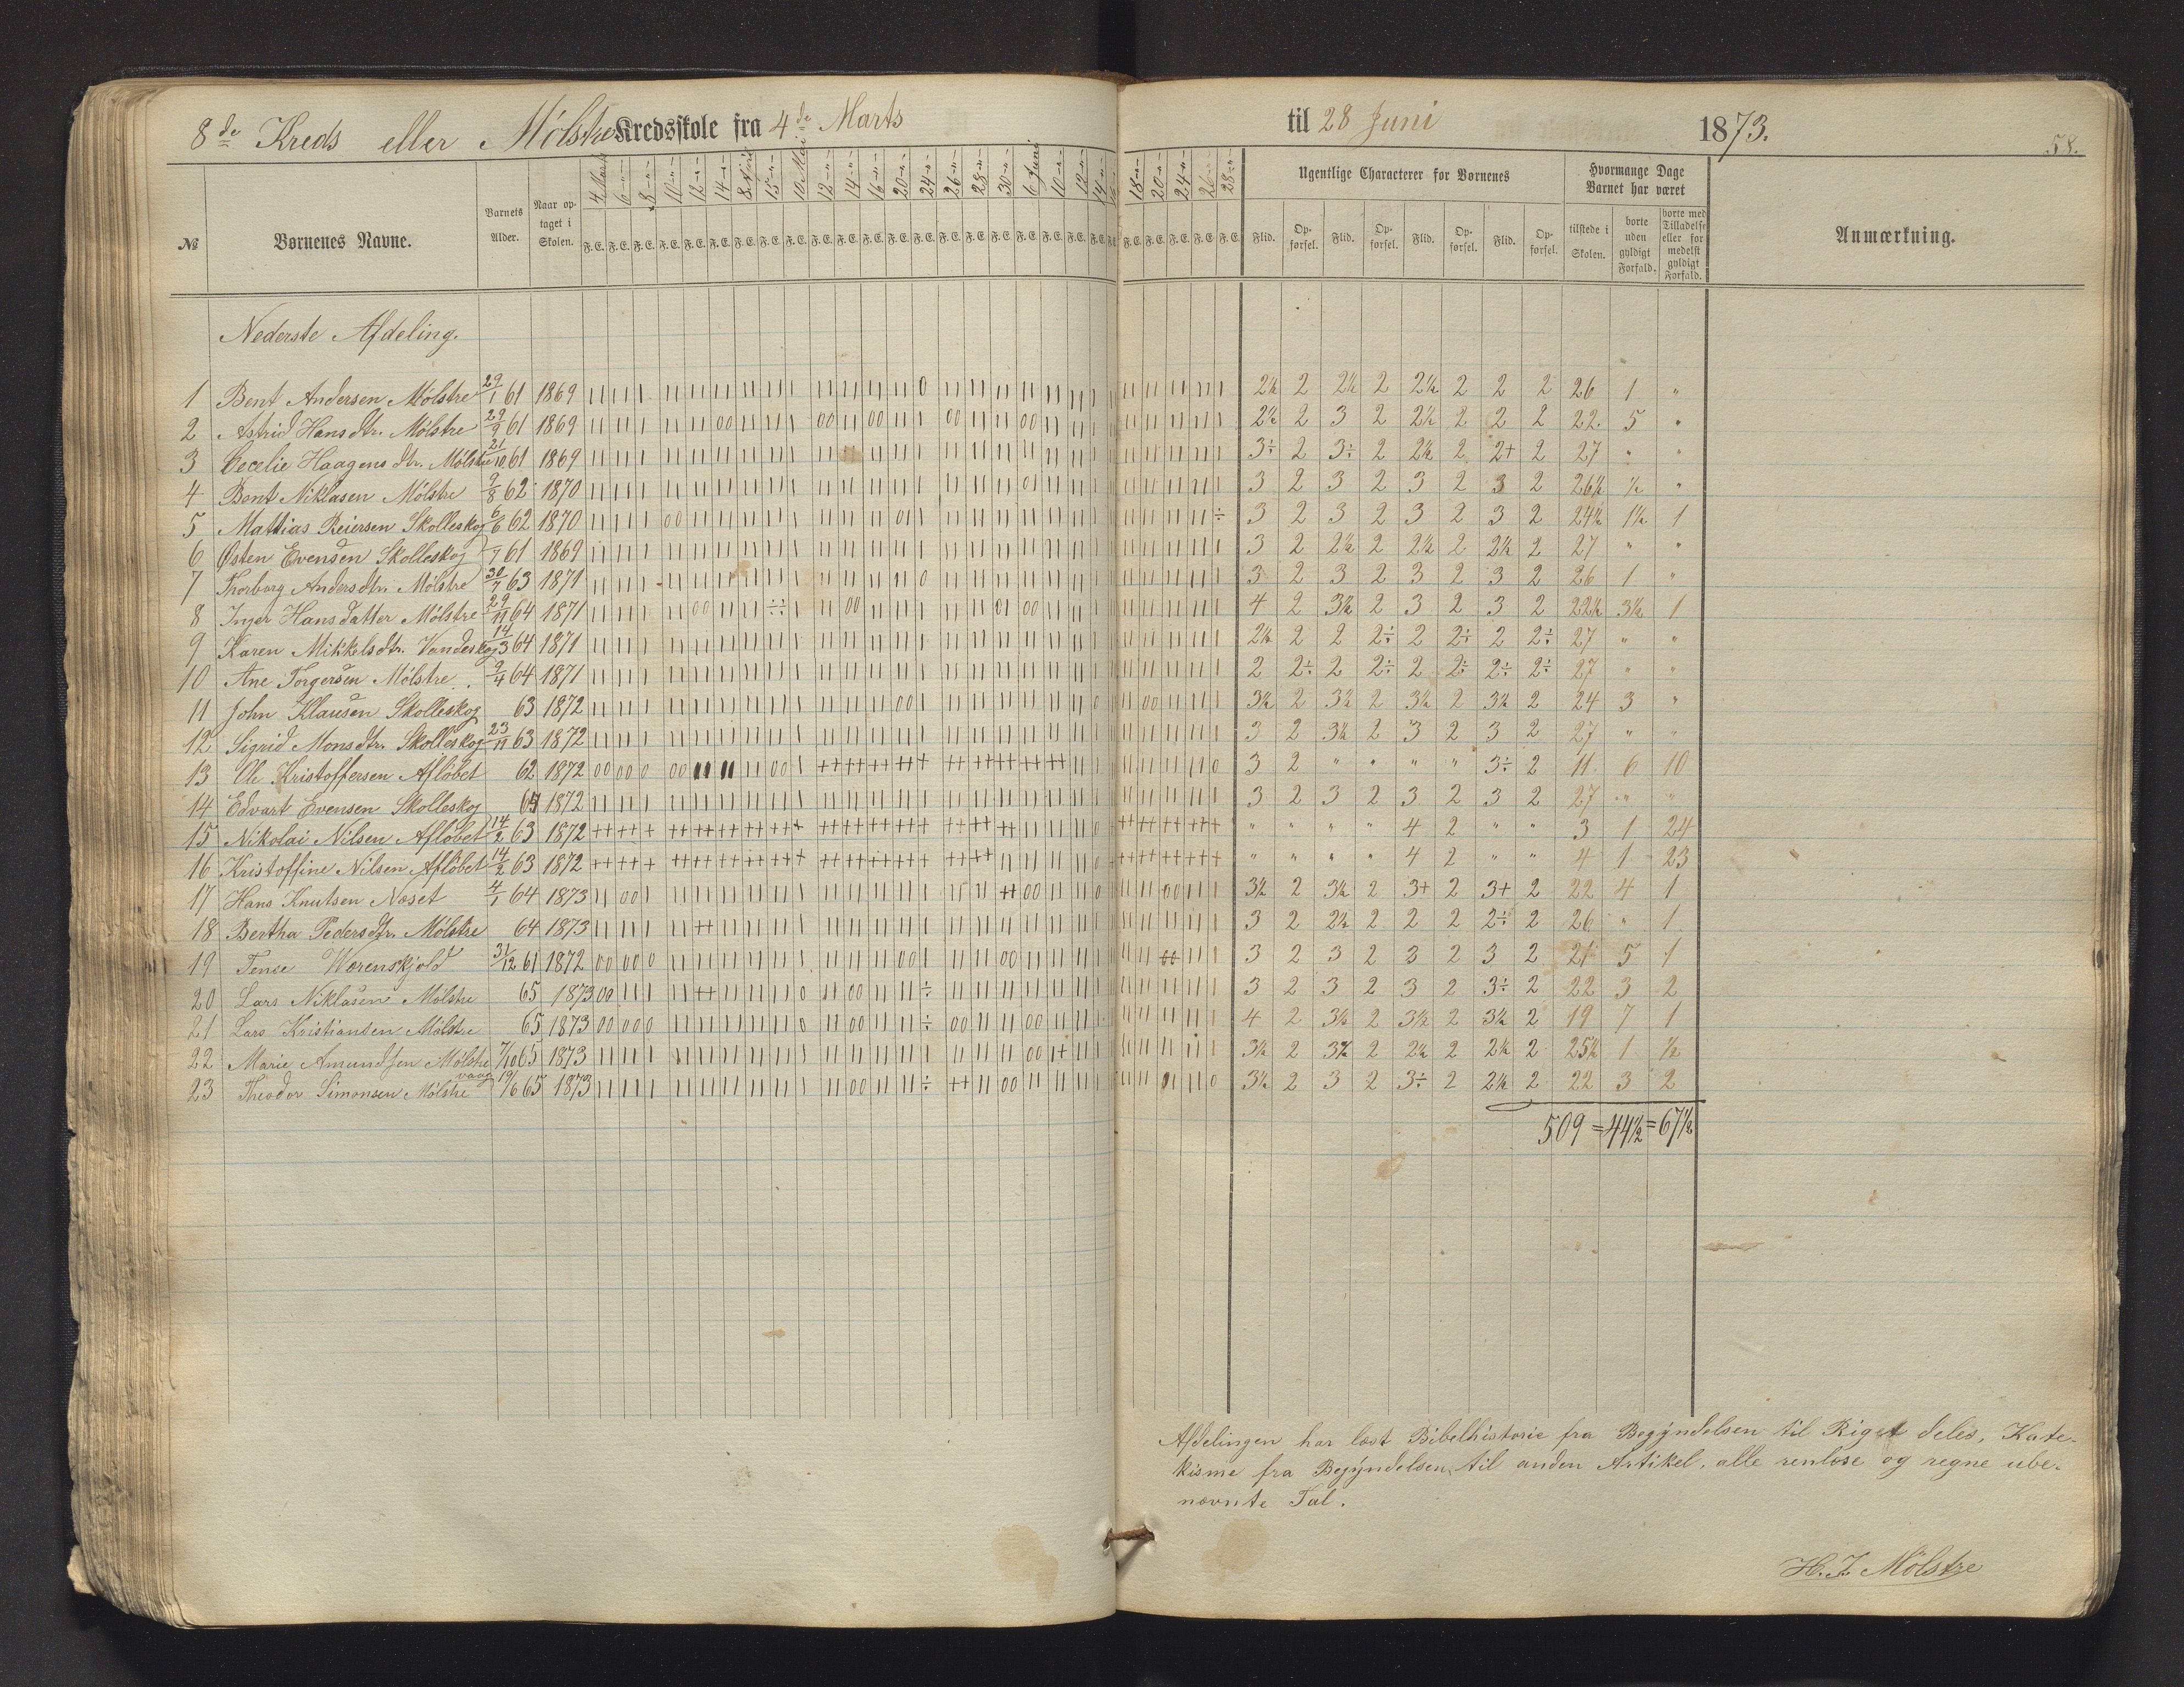 8de Kreds eller Mölstre Kredsskole fra 4de Marts til 28 Juni 1873.
58.
№ Børnenes Navne. Barnets Alder. Naar optaget i Skolen.
4 Marts 6 -"- 8 -"- 10 -"- 12 -"- 14 -"- 8 April 15 -"- 10 Mai 12 -"- 14 -"- 16 -"- 20 -"- 24 -"- 26 -"- 28 -"- 30 -"- 6 Juni 10 -"- 12 -"- 14 -"- 18 -"- 20 -"- 24 -"- 26 -"- 28 -"-
F. E.
Ugentlige Characterer for Børnenes
Flid. Opførsel. Flid. Opførsel. Flid. Opførsel. Flid. Opførsel.
Hvormange Dage Barnet har været
tilstede i Skolen. borte uden gyldigt Forfald. borte med Tilladelse eller formedelst gyldigt Forfald.
Anmærkning.
Nederste Afdeling.
1 Bent Andersen Mölstre 29/1 61 1869 2½ 2 2½ 2 2½ 2 2 2 26 1 "
2 Astrid Hansdtr. Mölstre 29/9 61 1869 2½ 2 3 2 2½ 2 2 2 22 5 "
3 Cecelie Haagensdtr. Mölstre 21/10 61 1869 3÷ 2 3÷ 2 2½ 2 2+ 2 27 " "
4 Bent Niklasen Mölstre 9/8 62 1870 3 2 3 2 3 2 3 2 26½ ½ "
5 Mattias Reiersen Skolleskog 6/6 62 1870 3 2 3 2 3 2 3 2 24½ 1½ 1
6 Østen Evensen Skolleskog 61 1869 3 2 2½ 2 2½ 2 2½ 2 27 " "
7 Thorborg Andersdtr. Mölstre 30/7 63 1871 3 2 3 2 3 2 3 2 26 1 "
8 Inger Hansdatter Mölstre 29/11 64 1871 4 2 3½ 2 3 2 3 2 22½ 3½ 1
9 Karen Mikkelsdtr. Vandeskog 14/3 64 1871 2½ 2 2 2÷ 2 2÷ 2 2÷ 27 " "
10 Ane Torgersen Mölstre 9/4 64 1871 2 2÷ 2 2÷ 2 2÷ 2÷ 2÷ 27 " "
11 John Klausen Skolleskog 63 1872 3½ 2 3½ 2 3½ 2 3½ 2 24 3 "
12 Sigrid Monsdtr. Skolleskog 23/11 63 1872 3 2 3½ 2 3 2 3 2 27 " "
13 Ole Kristoffersen Aflöbet 62 1872 3 2 " " " " 3÷ 2 11 6 10
14 Edvart Evensen Skolleskog 64 1872 3 2 3 2 3 2 3 2 27 " "
15 Nikolai Nilsen Aflöbet 14/2 63 1872 " " " " 4 2 " " 3 1 24
16 Kristoffine Nilsen Aflöbet 14/2 63 1872 " " " " 4 2 " " 4 1 23
17 Hans Knutsen Næset 4/1 64 1873 3½ 2 3½ 2 3+ 2 3+ 2 22 4 1
18 Bertha Pedersdtr. Mölstre 64 1873 3 2 2½ 2 2 2 2÷ 2 26 " 1
19 Tense Wærenskjold 31/12 61 1872 3 2 3 2 3 2 3 2 21 5 1
20 Lars Niklasen Mölstre 65 1873 3 2 3 2 3 2 3÷ 2 22 3 2
21 Lars Kristiansen Mölstre 65 1873 4 2 3½ 2 3½ 2 3½ 2 19 7 1
22 Marie Amundsen Mölstrevaag 7/10 65 1873 3½ 2 3½ 2 2½ 2 2½ 2 25½ 1 ½
23 Theodor Simonsen Mölstre 19/6 65 1873 3½ 2 3 2 3÷ 2 2½ 2 22 3 2
509 = 44½ = 67½
Afdelingen har læst Bibelhistorie fra Begyndelsen til Riget deles, Kate-
kisme fra Begyndelsen til anden Artikel, alle renlæse og regne ube-
nævnte Tal.
H. J. Mölstre